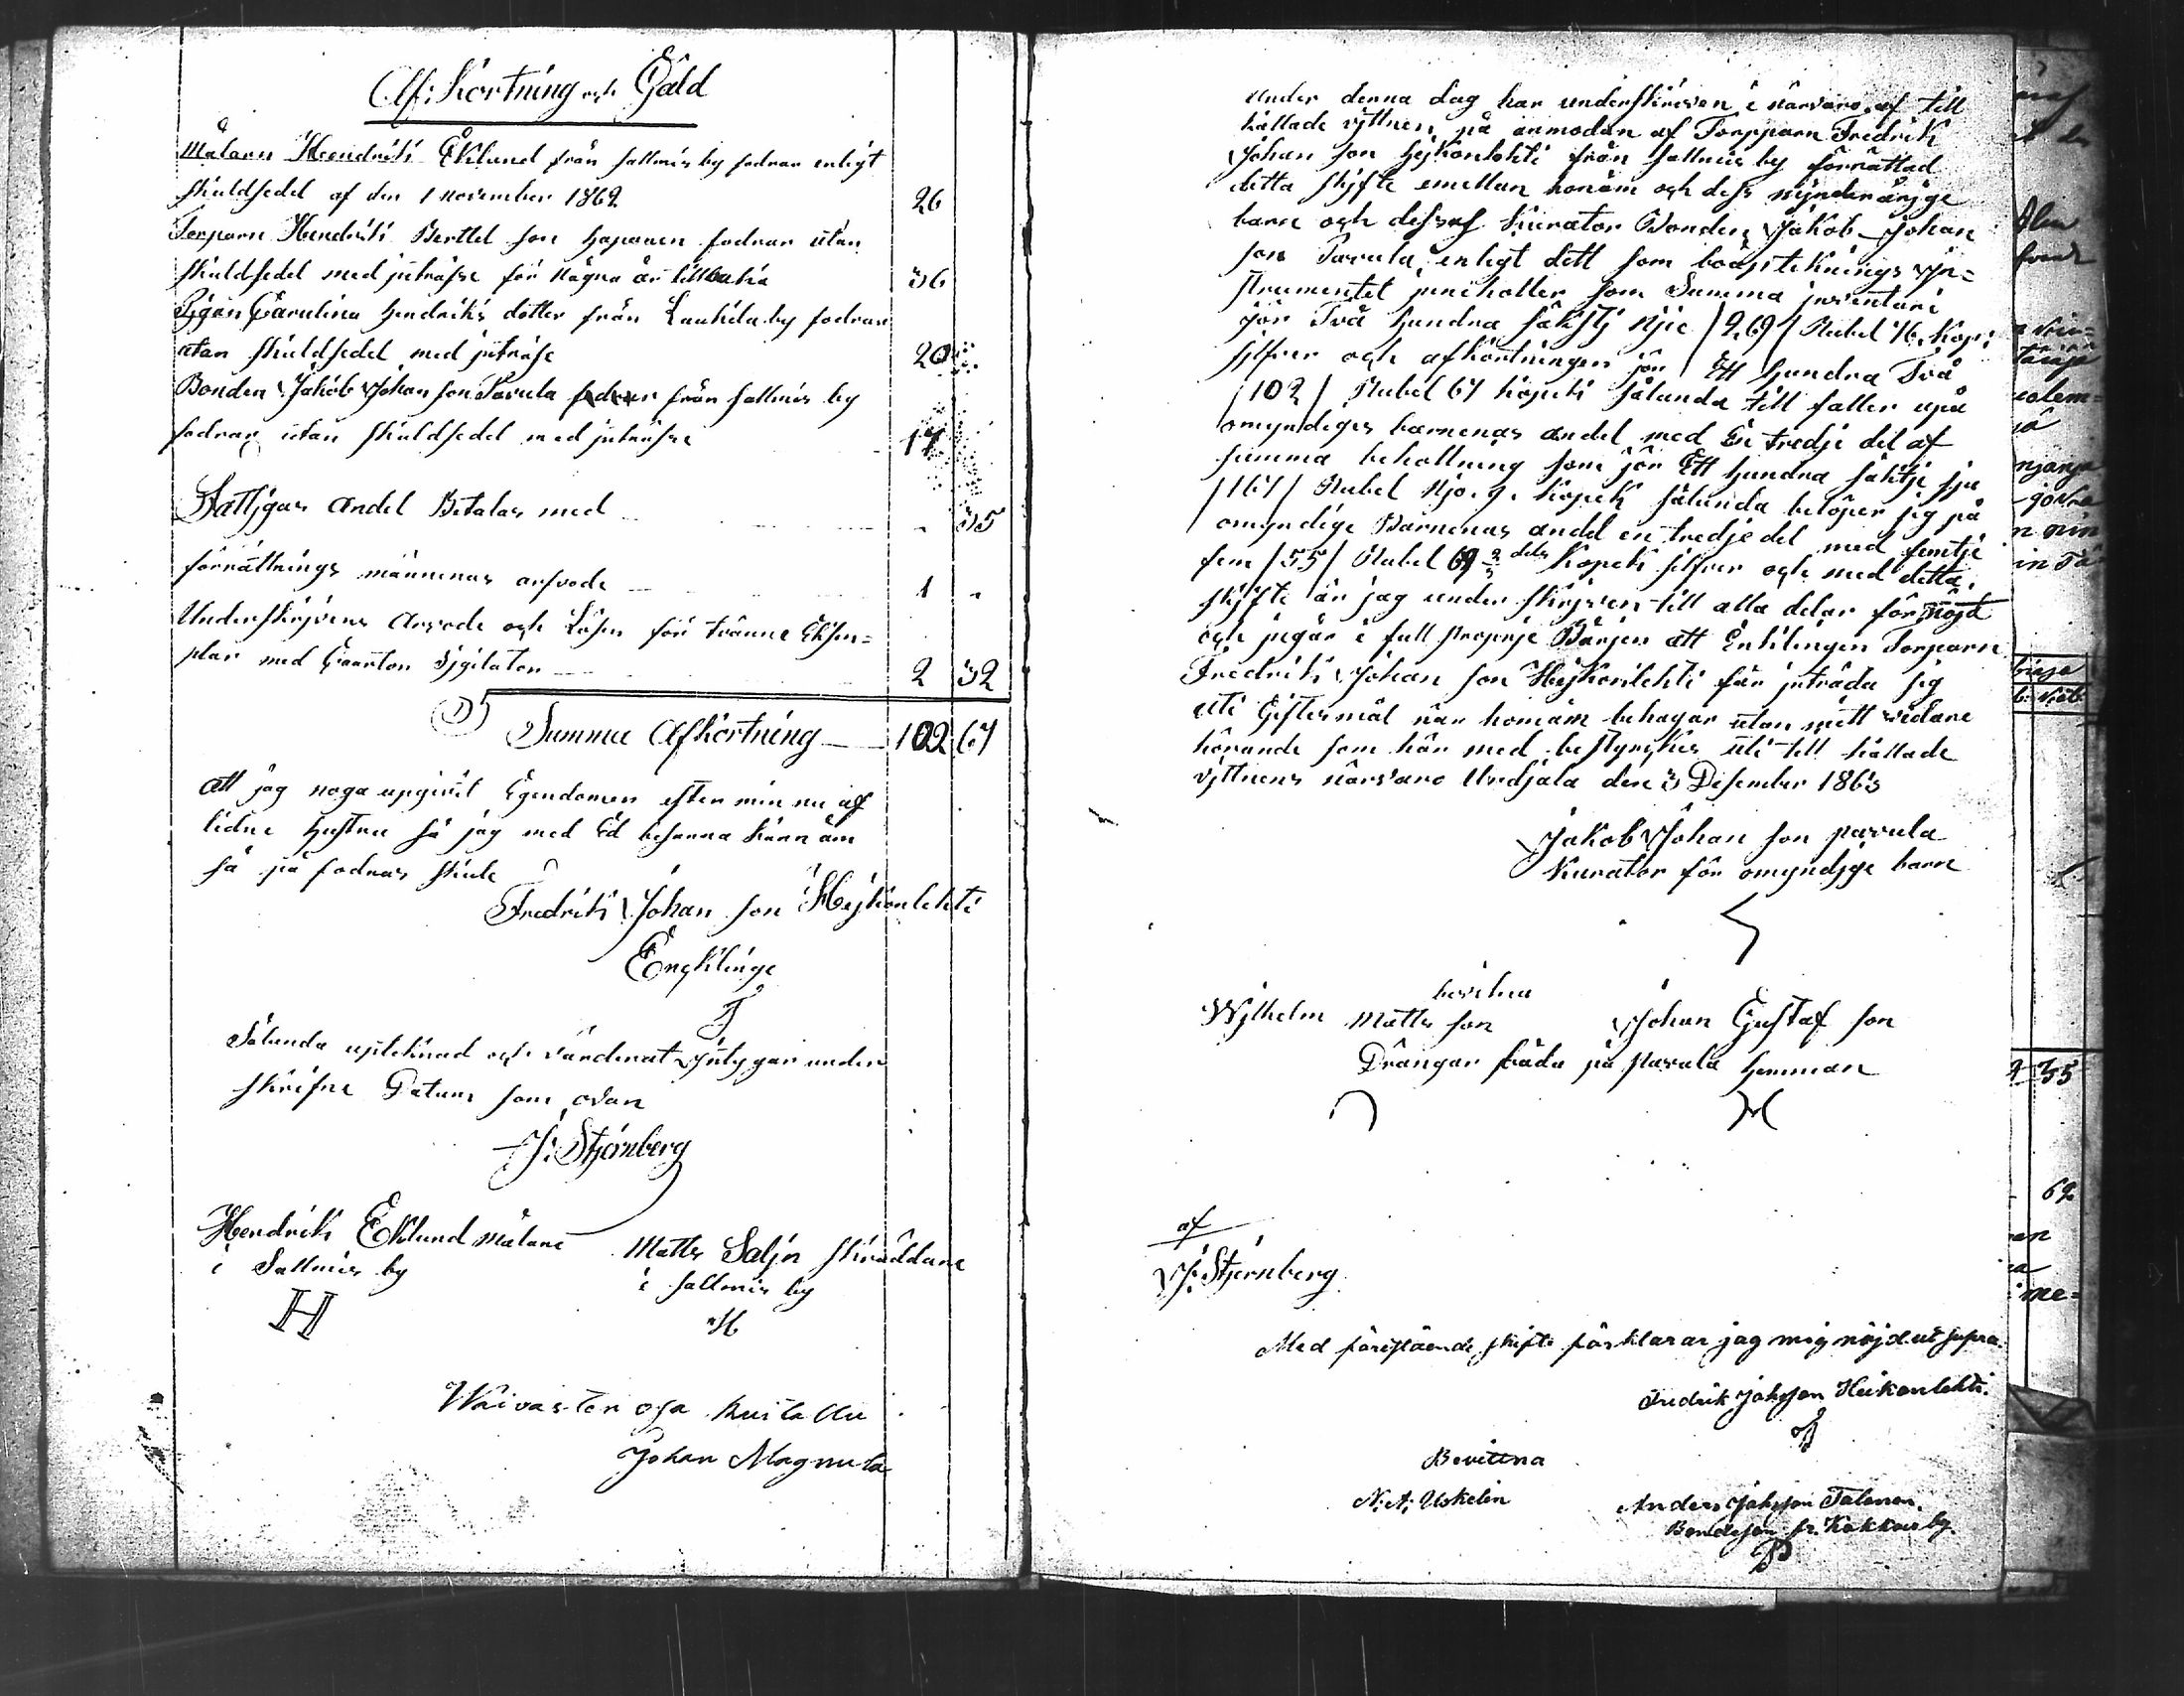 Af:kortning och Gäld
Målarn Hendrik Eklund från sallmis by fodrar enligt
skuldsedel af den 1 november 1862 26
Torparn Hendrik Berttel son Haponen fodrar utan
skuldsedel med jnträsse för några år tillbaka 36
Pigan Carulina Hendriks dotter från Laukila by fodrar
utan skuldsedel med jnträse 20
Bonden Jakob Johan son Pavula från sallmis by
fodrar utan skuldsedel med jnträsse 17
Fattjgas andel Betalas med - 35
förrättnings männenas arfvode 1 -
Underskrjvens Arvode och Lösen för tvänne Eksen=
plar med Caarton Sjgilaton 2 32
Summa Afkortning 102 67
Att jag noga upgivit Egendomen efter min nu af
lidne Hustru så jag med Ed besanna kan om
så på fodras skule
Fredrik Johan son Hejkonlehti
Enghlinge
Sålunda upteknad och värderat Jntygar under
skrifne Datum som ovan
J: Stjernberg
Hendrik Eklund målare Matts Saljn skräddare
i Sallmis by i sallmis by
H H
Waivasten osa kuitattu
Johan Magnula
Under denna dag har underskreven i närvaro af till
kallade vjttnen, på anmodan af Torpparn Fredrik
Johan son Hejkonlehti från sallmis by förrättad
detta skjfte emellan honom och dess mynderårjge
barn och dess Kurator Bonden Jakob Johan
son Pavula, enligt dett som boupteknings jn=
strumentet jnneholler som Summa jnventari
jör Två Hundra säkstj njie /269/ Rubel 76. Kop:
sjlfver och afkortningen jör Ett Hundra Två
/102/ Rubel 67 kopek sålunda till faller upå
omyndiges barnenas andel med En tredje del af
summa behollning som jör Ett Hundra säktje sju
/167/ Rubel Njo. 9. kopek sålunda belöper sjg på
omyndige Barnenas andel en tredje del med femtje
fem /55/ Rubel 69 2/3 dels Kopek silfver och med detta
skjfte är jag under skrjven till alla delar för nöjd
och jngår i full Att Enklingen Torparn
Fredrik Johan son Hejkonlehti får jnträda sjg
uti Giftermål när honom behagar utan mitt vidare
hörande som här med bestyrkes uti till kallade
vjttnens närvaro Urdjala den 3 Desember 1863
Jakob Johan son pavula
Kurator för omyndjge barn
bevitna
Wjlhelm Matts son Johan Gustaf son
Drängar båda på Pavula Hemman
af
J: Stjernberg
Med förestående skifte förklarar jag mig nöjd ut supra.
Fredrik Johsson Heikonlehti.
Bevittna
N: A: Uskelin Anders Johsson Talonen
Bondeson fr. Kokkois by.